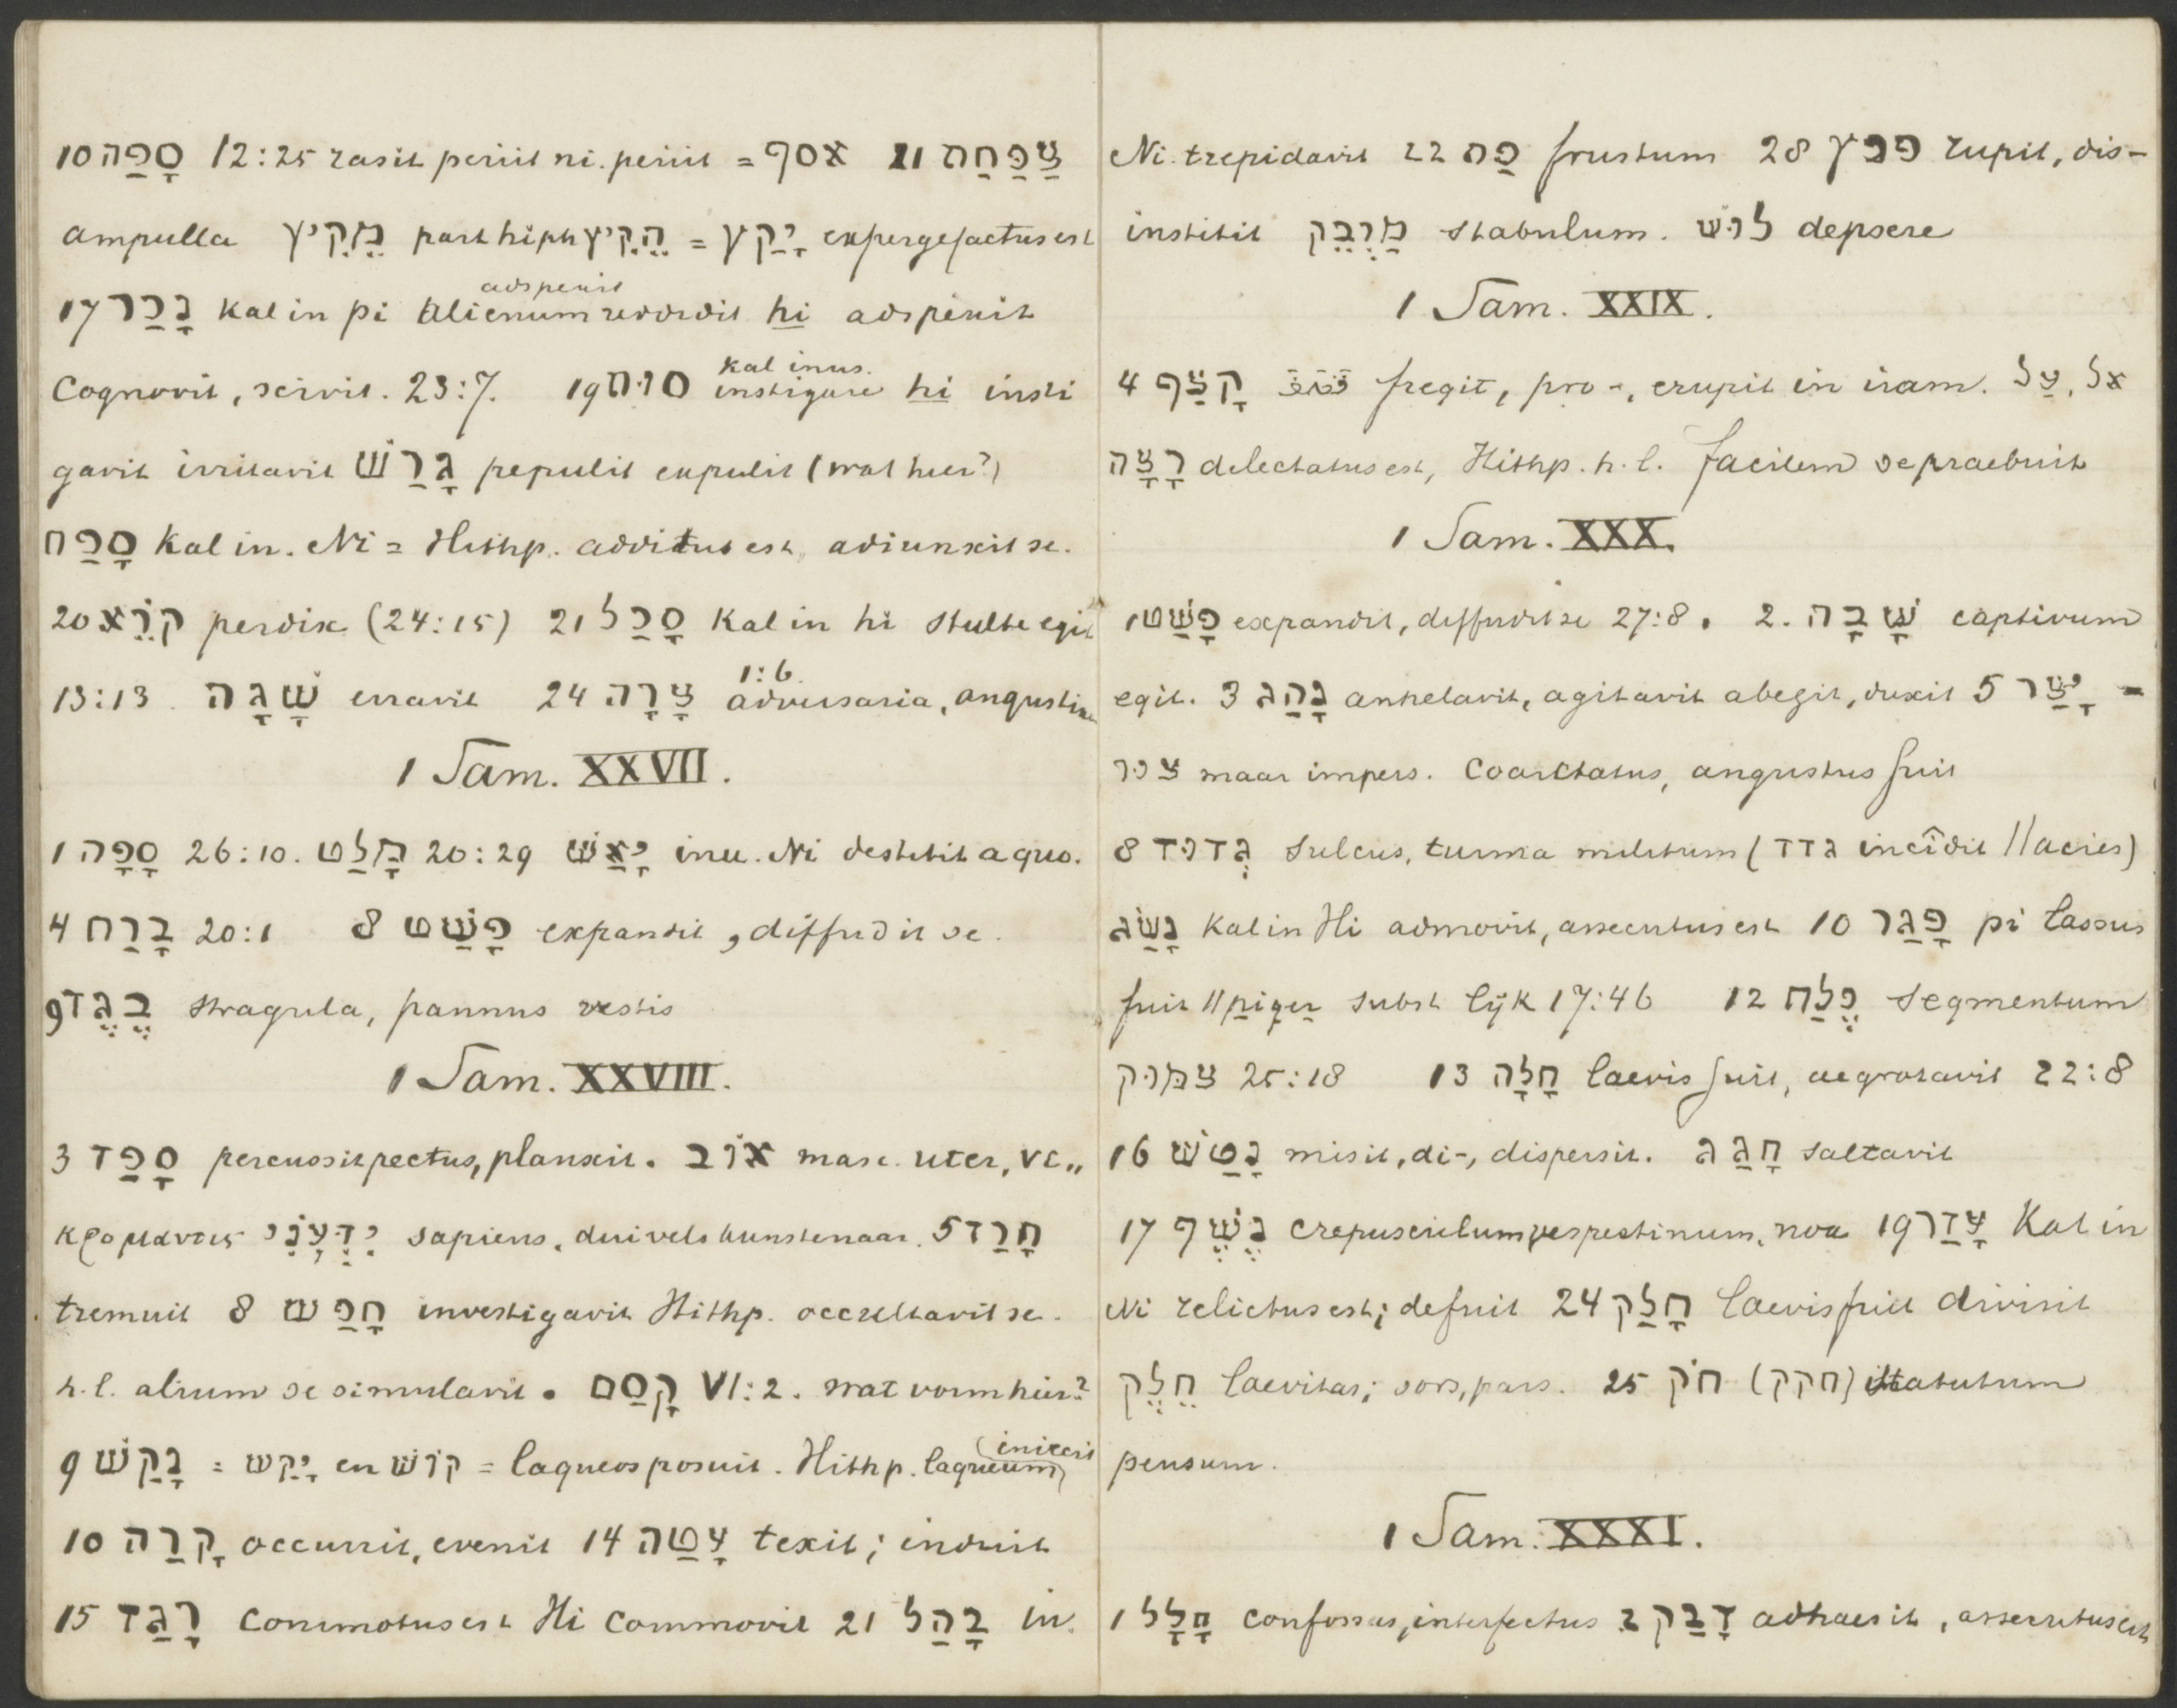 10 סָפַה 12:25 rasit periit ni. periit = אסף 11 צַפַּחַת
ampulla מֵקִיץ part hiph הֵקִיץ = יָקַץ expergefactus est
adspexit
17 נָכַר Kal in pi alienum reddidit hi adspexit
Kal inus.
Cognovit, scivit. 23:7. 19 סוּת instigare hi insti
gavit irritavit גָרַשׁ pepulit expulit (wat hier?)
סָפַח Kal in. Ni = Hithp. additus est, adiunxit se.
20 קֹרֵא perdix (24:15) 21 סָכַל Kal in hi stulte egit
1:6.
13:13. שָׁגָה erravit 24 צָרָה adversaria, angustiae
1 Sam. XXVII.
1 סָפָה 26:10. מָלַט 20:29 יָאַשׁ inu. Ni destitit a quo.
4 בָרַח 20:1 8 פָשַׁט expandit, diffudit se.
9 בֶגֶד stragula, pannus vestis
1 Sam. XXVIII.
3 סָפַד percussit pectus, planxit. אוֹב masc. uter, νε„
κρομαντις יִדְּעֹנִי sapiens, duivelskunstenaar. 5 חָרַד
tremuit 8 חָפַשׂ investigavit Hithp. occultavit se.
h.l. alium se simulavit. קָסַם VI:2. wat vorm hier?
(iniecit
9 נָקַשׁ = יָקַשׁ en קוֹשׁ = laqueos posuit. Hithp. laqueum)
10 קָרַה occurrit, evenit 14 עָטַה texit; induit
15 רָגַז commotus est Hi commovit 21 בָהַל in.
Ni. trepidavit 22 פַת frustum 28 פרץ rupit, dis-
institit מַרְבֵּק stabulum. לוּשׁ depsere
1 Sam. XXIX.
4 קָצַף قصف fregit, pro-, erupit in iram. אל, עַל
רָצָה delectatus est, Hithp. h.l. facilem se praebuit
1 Sam. XXX.
1 פָשַׁט expandit, diffudit se 27:8. 2. שָׁבָה captivum
egit. 3 נָהַג anhelavit, agitavit abegit, duxit 5 יָצַר =
צור maar impers. Coarctatus, angustus fuit
8 גְדוּד sulcus, turma militum (גדד incîdit // acies)
נָשַׂג Kal in Hi admovit, assecutus est 10 פָגַר pi lassus
fuit // piger subst lijk 17:46 12 פֶלַח segmentum
צמוק 25:18 13 חָלָה laevis fuit, aegrotavit 22:8
16 נָטַשׁ misit, di-, dispersit. חָגַג saltavit
17 נֶשֶׁף crepusculum vespestinum, nox 19 עָדַר Kal in
Ni relictus est; defuit 24 חָלַק laevis fuit divisit
חֵלֶק laevitas; sors, pars. 25 חֹק (חקק) statutum
pensum.
1 Sam. XXXI.
1 חָלָל confossus, interfectus 2 דָבַק adhaesit, assecutus est